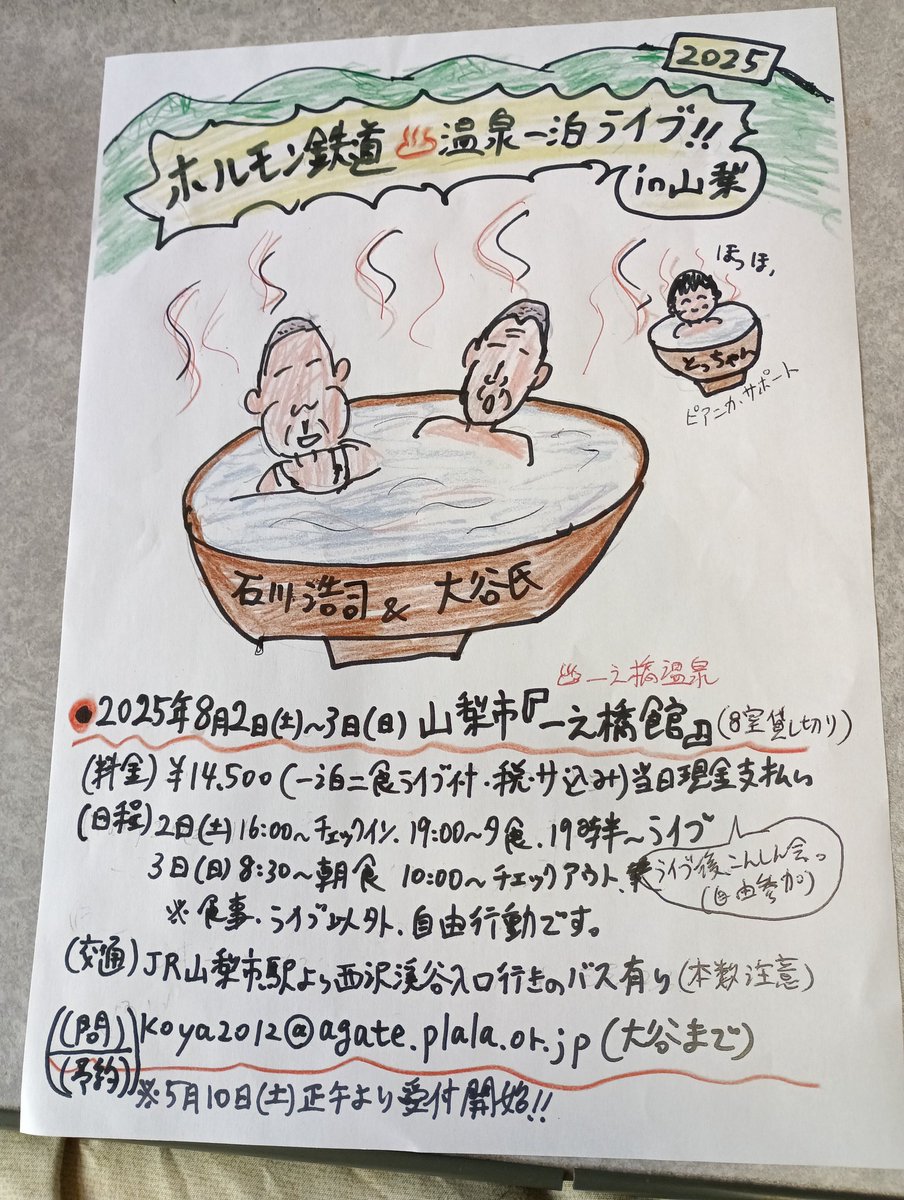 2025
ホルモン鉄道♨温泉一泊ライブ!!
in山梨
ほっほ,
とっちゃん
ピアニカ・サポート
石川浩司 & 大谷氏
♨一之橋温泉
●2025年8月2日(土)~3日(日) 山梨市『一之橋館』(8室貸し切り)
(料金) ¥14.500 (一泊二食ライブ付・税・サ込み)当日現金支払い
(日程) 2日(土)16:00~チェックイン、19:00~夕食、19時半~ライブ
3日(日) 8:30~朝食 10:00~チェックアウト、
ライブ後、こんしん会。
(自由参加)
※食事、ライブ以外、自由行動です。
(交通) JR山梨市駅より西沢渓谷入口行きのバス有り(本数注意)
(問)
(予約)
koya2012@agate.plala.or.jp (大谷まで)
※5月10日(土)正午より受付開始!!